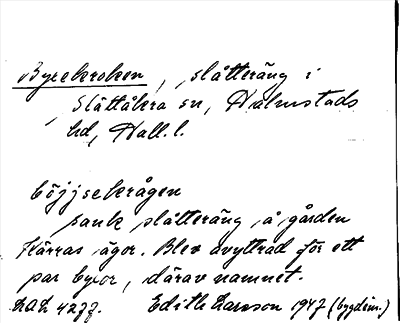 Byxekroken, slåtteräng i
Slättåkra sn, Halmstads
hd, Hall. l.
böjjsekrågen
sank slåtteräng å gården
Kärras ägor. Blev avyttrad för ett
par byxor, därav namnet.
LAL 4277. Edith Larsson 1947 (bygdim.)